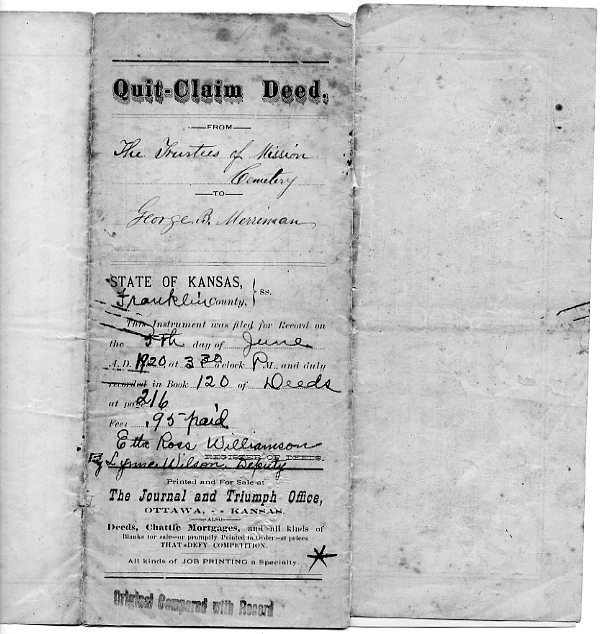 Quit-Claim Deed,
FROM
The Trustees of Mission
Cemetery
TO
George B. Merriman
STATE OF KANSAS,
Franklin County, } ss.
This Instrument was filed for Record on
the 5th day of June
A. D. 1920 at 3 30 o'clock P M., and duly
recorded in Book 120 of Deeds
at page 216
Fees .95 paid
Etta Ross Williamson
REGISTER OF DEEDS.
By Lynne Wilson, Deputy
Printed and For Sale at
The Journal and Triumph Office,
OTTAWA, - - KANSAS.
ALSO
Deeds, Chattle Mortgages, and all kinds of
Blanks for sale—or promptly Printed to Order—at prices
THAT DEFY COMPETITION.
All kinds of JOB PRINTING a Specialty.
Original Compared with Record